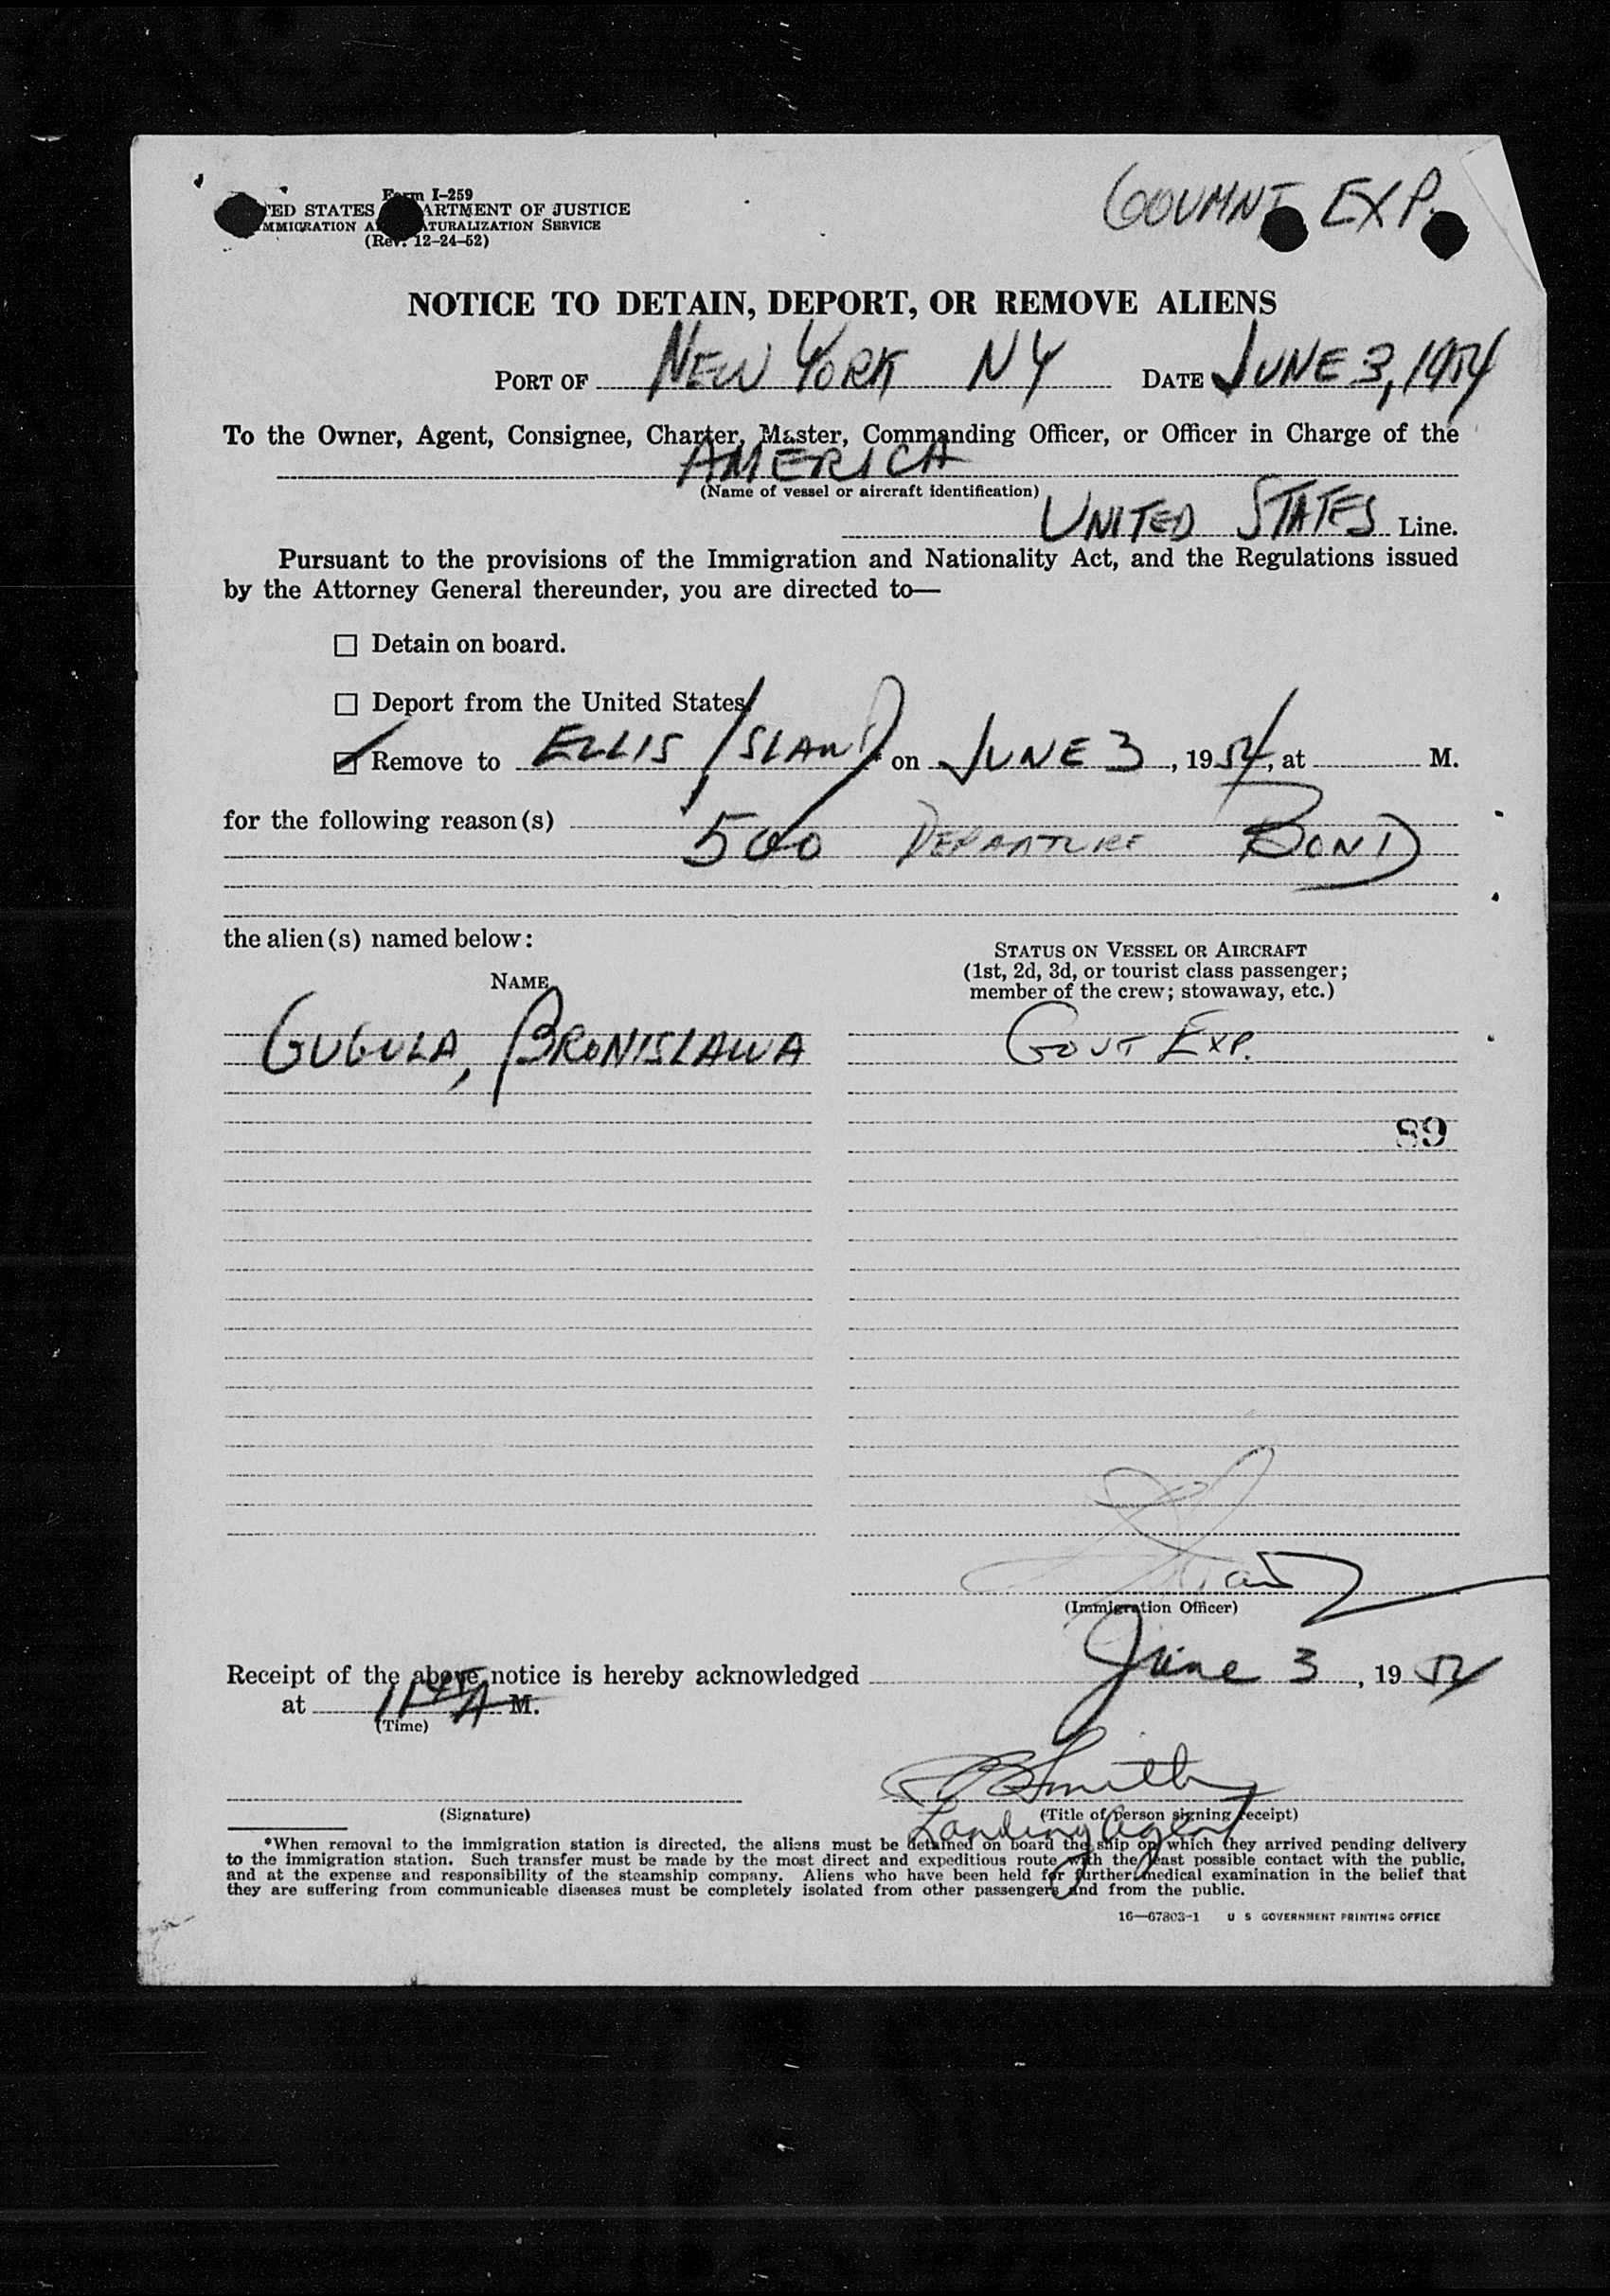 Form I–259
UNITED STATES DEPARTMENT OF JUSTICE
IMMIGRATION AND NATURALIZATION SERVICE
(Rev. 12–24–52)
GOVMNT EXP.
NOTICE TO DETAIN, DEPORT, OR REMOVE ALIENS
PORT OF NEW YORK NY DATE JUNE 3, 1954
To the Owner, Agent, Consignee, Charter, Master, Commanding Officer, or Officer in Charge of the
AMERICA
(Name of vessel or aircraft identification)
UNITED STATES Line.
Pursuant to the provisions of the Immigration and Nationality Act, and the Regulations issued
by the Attorney General thereunder, you are directed to—
Detain on board.
Deport from the United States
Remove to ELLIS ISLAND on JUNE 3, 1954, at M.
for the following reason(s)
500 DEPARTURE BOND
the alien(s) named below:
NAME
STATUS ON VESSEL OR AIRCRAFT
(1st, 2d, 3d, or tourist class passenger;
member of the crew; stowaway, etc.)
GUGULA, BRONISLAWA GOVT EXP.
89
(Immigration Officer)
Receipt of the above notice is hereby acknowledged June 3, 19 54
at A M.
(Time)
Smith
(Signature) (Title of person signing receipt)
Landing Agent
*When removal to the immigration station is directed, the aliens must be detained on board the ship on which they arrived pending delivery
to the immigration station. Such transfer must be made by the most direct and expeditious route with the least possible contact with the public,
and at the expense and responsibility of the steamship company. Aliens who have been held for further medical examination in the belief that
they are suffering from communicable diseases must be completely isolated from other passengers and from the public.
16—67803-1 U S GOVERNMENT PRINTING OFFICE